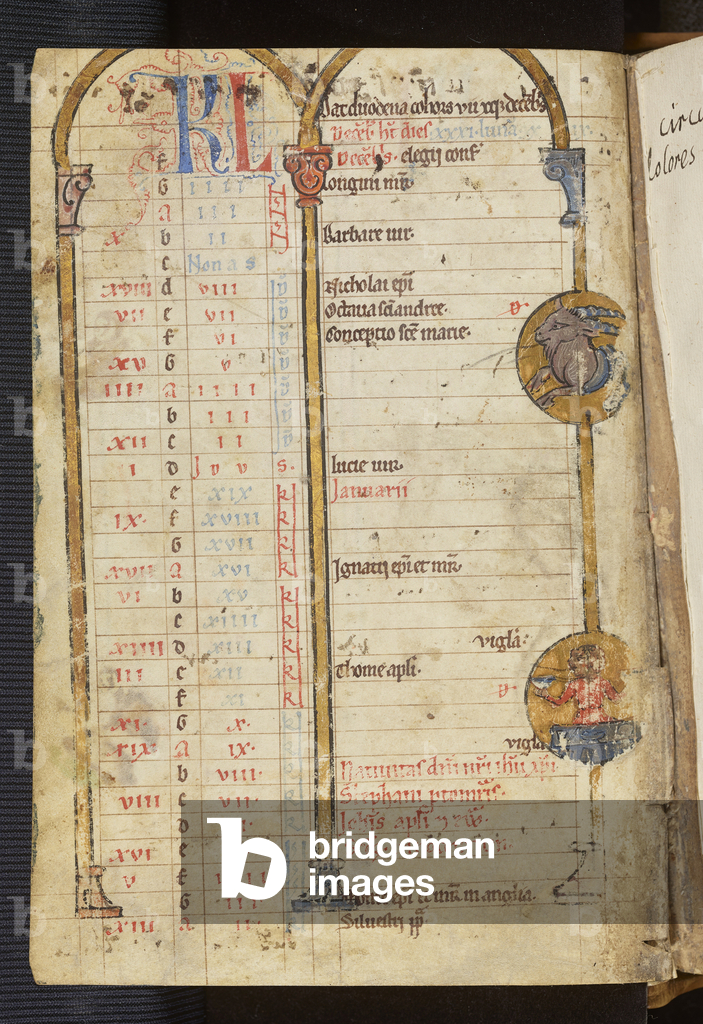 KL
Dat duodena cohors vii
Decēb ht dies xxxi luna
f Decēbs. elegii conf
G iiii longini mr.
A iii
x b ii Barbare uir.
c Nonas
xviii d viii Nicholai epi
vii e vii Octaua sci andree.
f vi Conceptio sce marie.
xv G v
iiii A iiii
b iii
xii c ii
i d Idus lucie uir.
e xix Januarii
ix. f xviii k
G xvii k
xvii A xvi k Ignatii epi et mr.
vi b xv k
c xiiii k
xiiii d xiii k vigla:
iii e xii k Thome apli.
f xi k
xi. G x.
xix A ix. vigla
b viii. Natiuitas dni nri ihu xpi.
viii c vii. Stephani ptomris.
d Iohis apli
xvi e
v f
G iii epi et mr. in anglia.
xiii A Siluestri pp
circu
Colores
b bridgeman
images